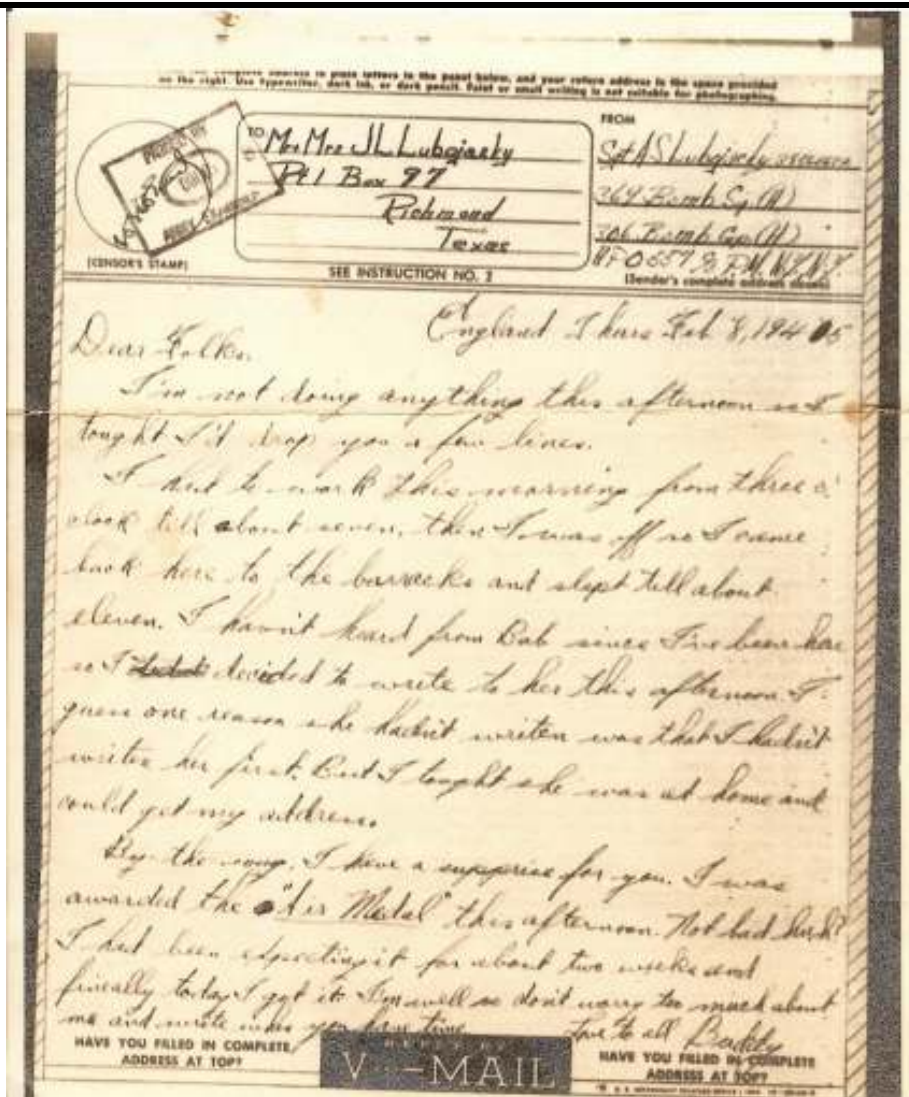 complete address in plain letters in the panel below, and your return address in the space provided
on the right. Use typewriter, dark ink, or dark pencil. Faint or small writing is not suitable for photographing.
FROM
TO
Mr Mrs J L Lubojasky
Rt 1 Box 97
Richmond
Texas
Sgt A S Lubojasky
369 Bomb Sq (H)
306 Bomb Gp (H)
APO 557 % P.M. N.Y. N.Y.
(CENSOR'S STAMP)
SEE INSTRUCTION NO. 2
(Sender's complete address above)
PASSED BY
ARMY EXAMINER
England Thurs Feb 8, 1945
Dear Folks.
I'm not doing anything this afternoon so I
tought I'd drop you a few lines.
I had to work this morning from three o'
clock till about seven, then I was off so I came
back here to the barracks and slept till about
eleven. I havn't heard from Bab since I've been here
so I decided to write to her this afternoon. I
guess one reason she hadn't writen was that I hadn't
writen her first. But I tought she was at home and
could get my address.
By the way, I have a supprise for you. I was
awarded the "Air Medal" this afternoon. Not bad huh?
I had been expecting it for about two weeks and
fineally today I got it. I'm well so don't worry too much about
me and write when you have time
Love to all Buddy
HAVE YOU FILLED IN COMPLETE
ADDRESS AT TOP?
V···—MAIL
HAVE YOU FILLED IN COMPLETE
ADDRESS AT TOP?